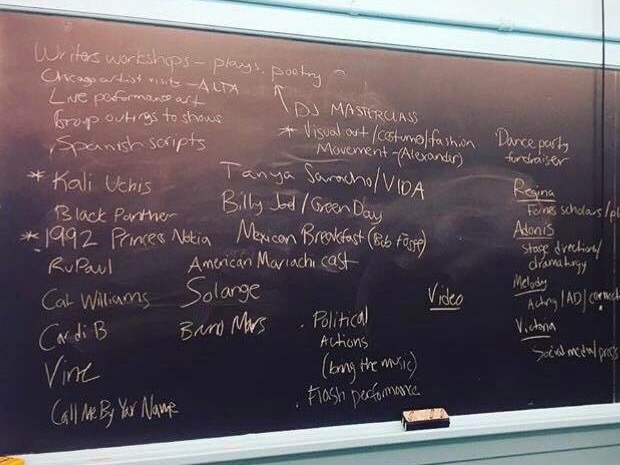 Writers workshops - plays, poetry
Chicago artist visits - ALTA
Live performance art
Group outings to shows
Spanish scripts
DJ MASTERCLASS
* Visual art/costume/fashion
Movement - (Alexander)
Dance party
fundraiser
* Kali Uchis
Black Panther
* 1992 Princess Nokia
RuPaul
Cat Williams
Cardi B
Vine
Call Me By Your Name
Tanya Saracho/VIDA
Billy Joel/Green Day
Mexican Breakfast (Bob Fosse)
American Mariachi cast
Solange
Bruno Mars
. Political
Actions
(bring the music)
. Flash performance
Video
Regina
Fornes scholars/pl
Adonis
Stage direction/
dramaturgy
Melody
Acting/AD/
Victoria
Social media/press